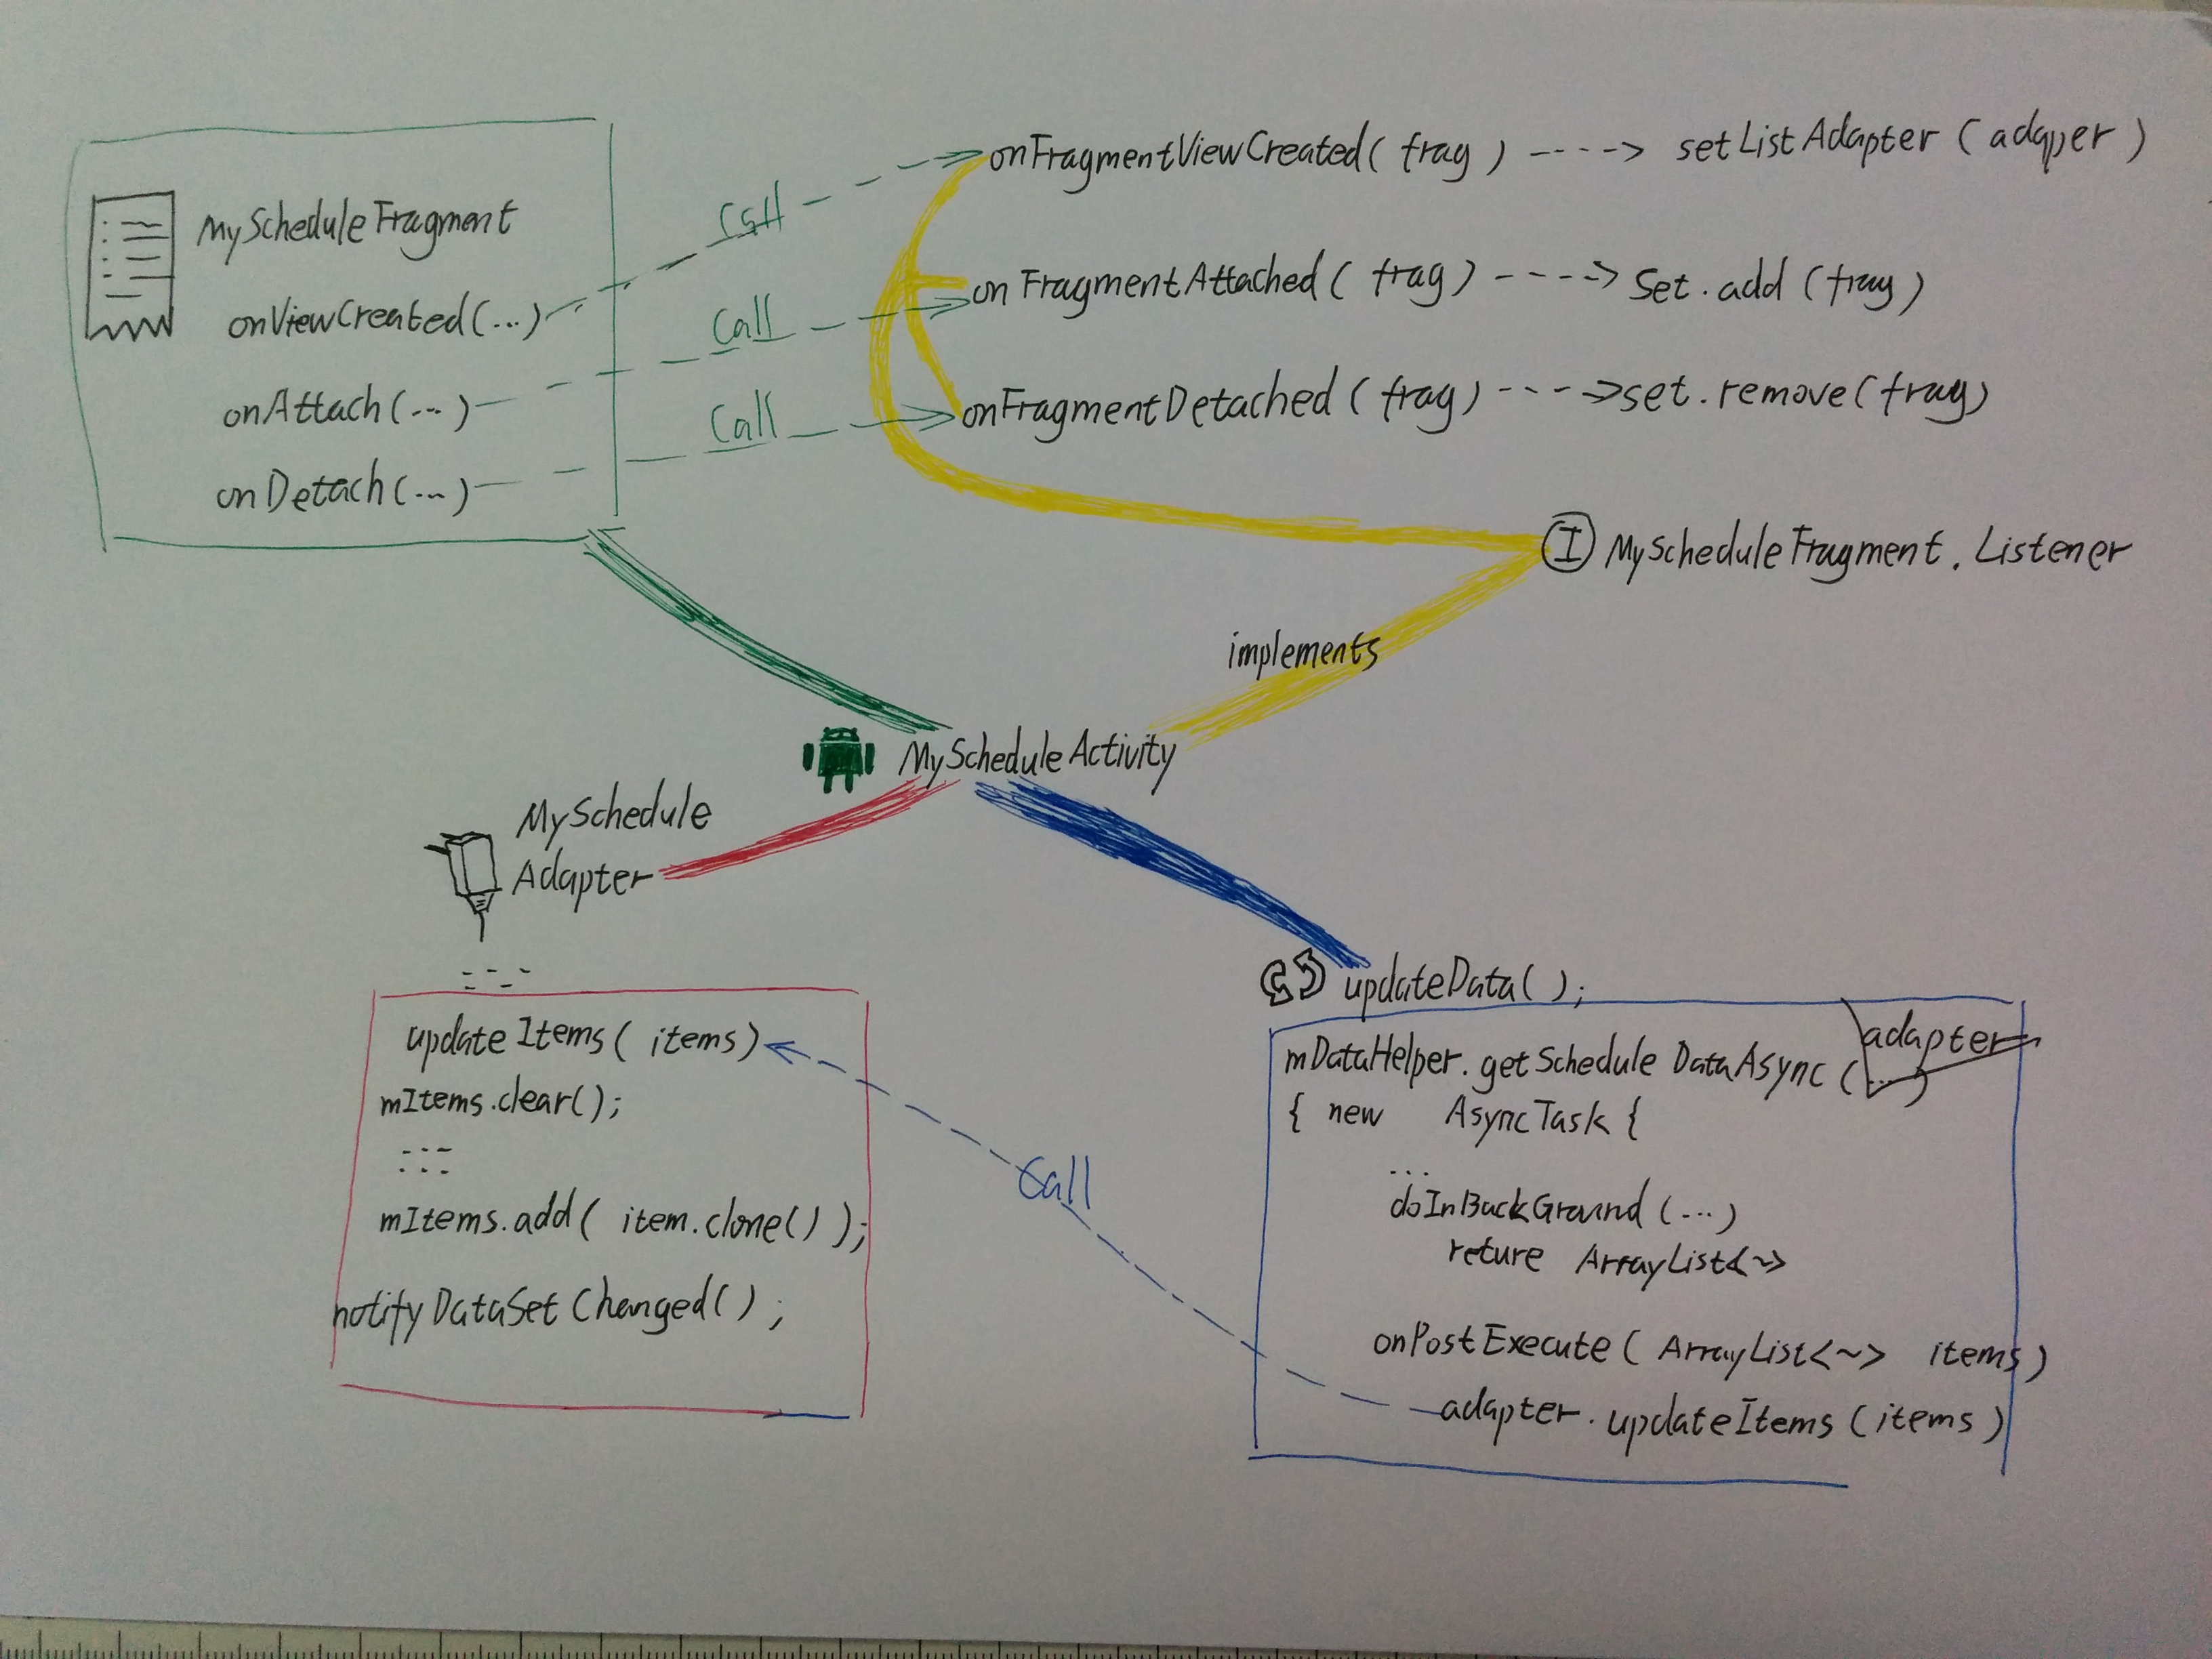 MyScheduleFragment
onViewCreated(...)
onAttach(...)
onDetach(...)
Call
Call
Call
onFragmentViewCreated( frag ) ----> setListAdapter ( adapper )
onFragmentAttached( frag ) ----> Set.add (frag)
onFragmentDetached( frag ) ----> set.remove(frag)
I MyScheduleFragment.Listener
implements
MyScheduleActivity
MySchedule
Adapter
updateItems( items)
mItems.clear();
mItems.add( item.clone() );
notifyDataSetChanged();
Call
updateData();
adapter
mDataHelper.getScheduleDataAsync(...)
{ new AsyncTask {
...
doInBackGround(...)
reture ArrayList<~>
onPostExecute( ArrayList<~> items)
adapter.updateItems(items)